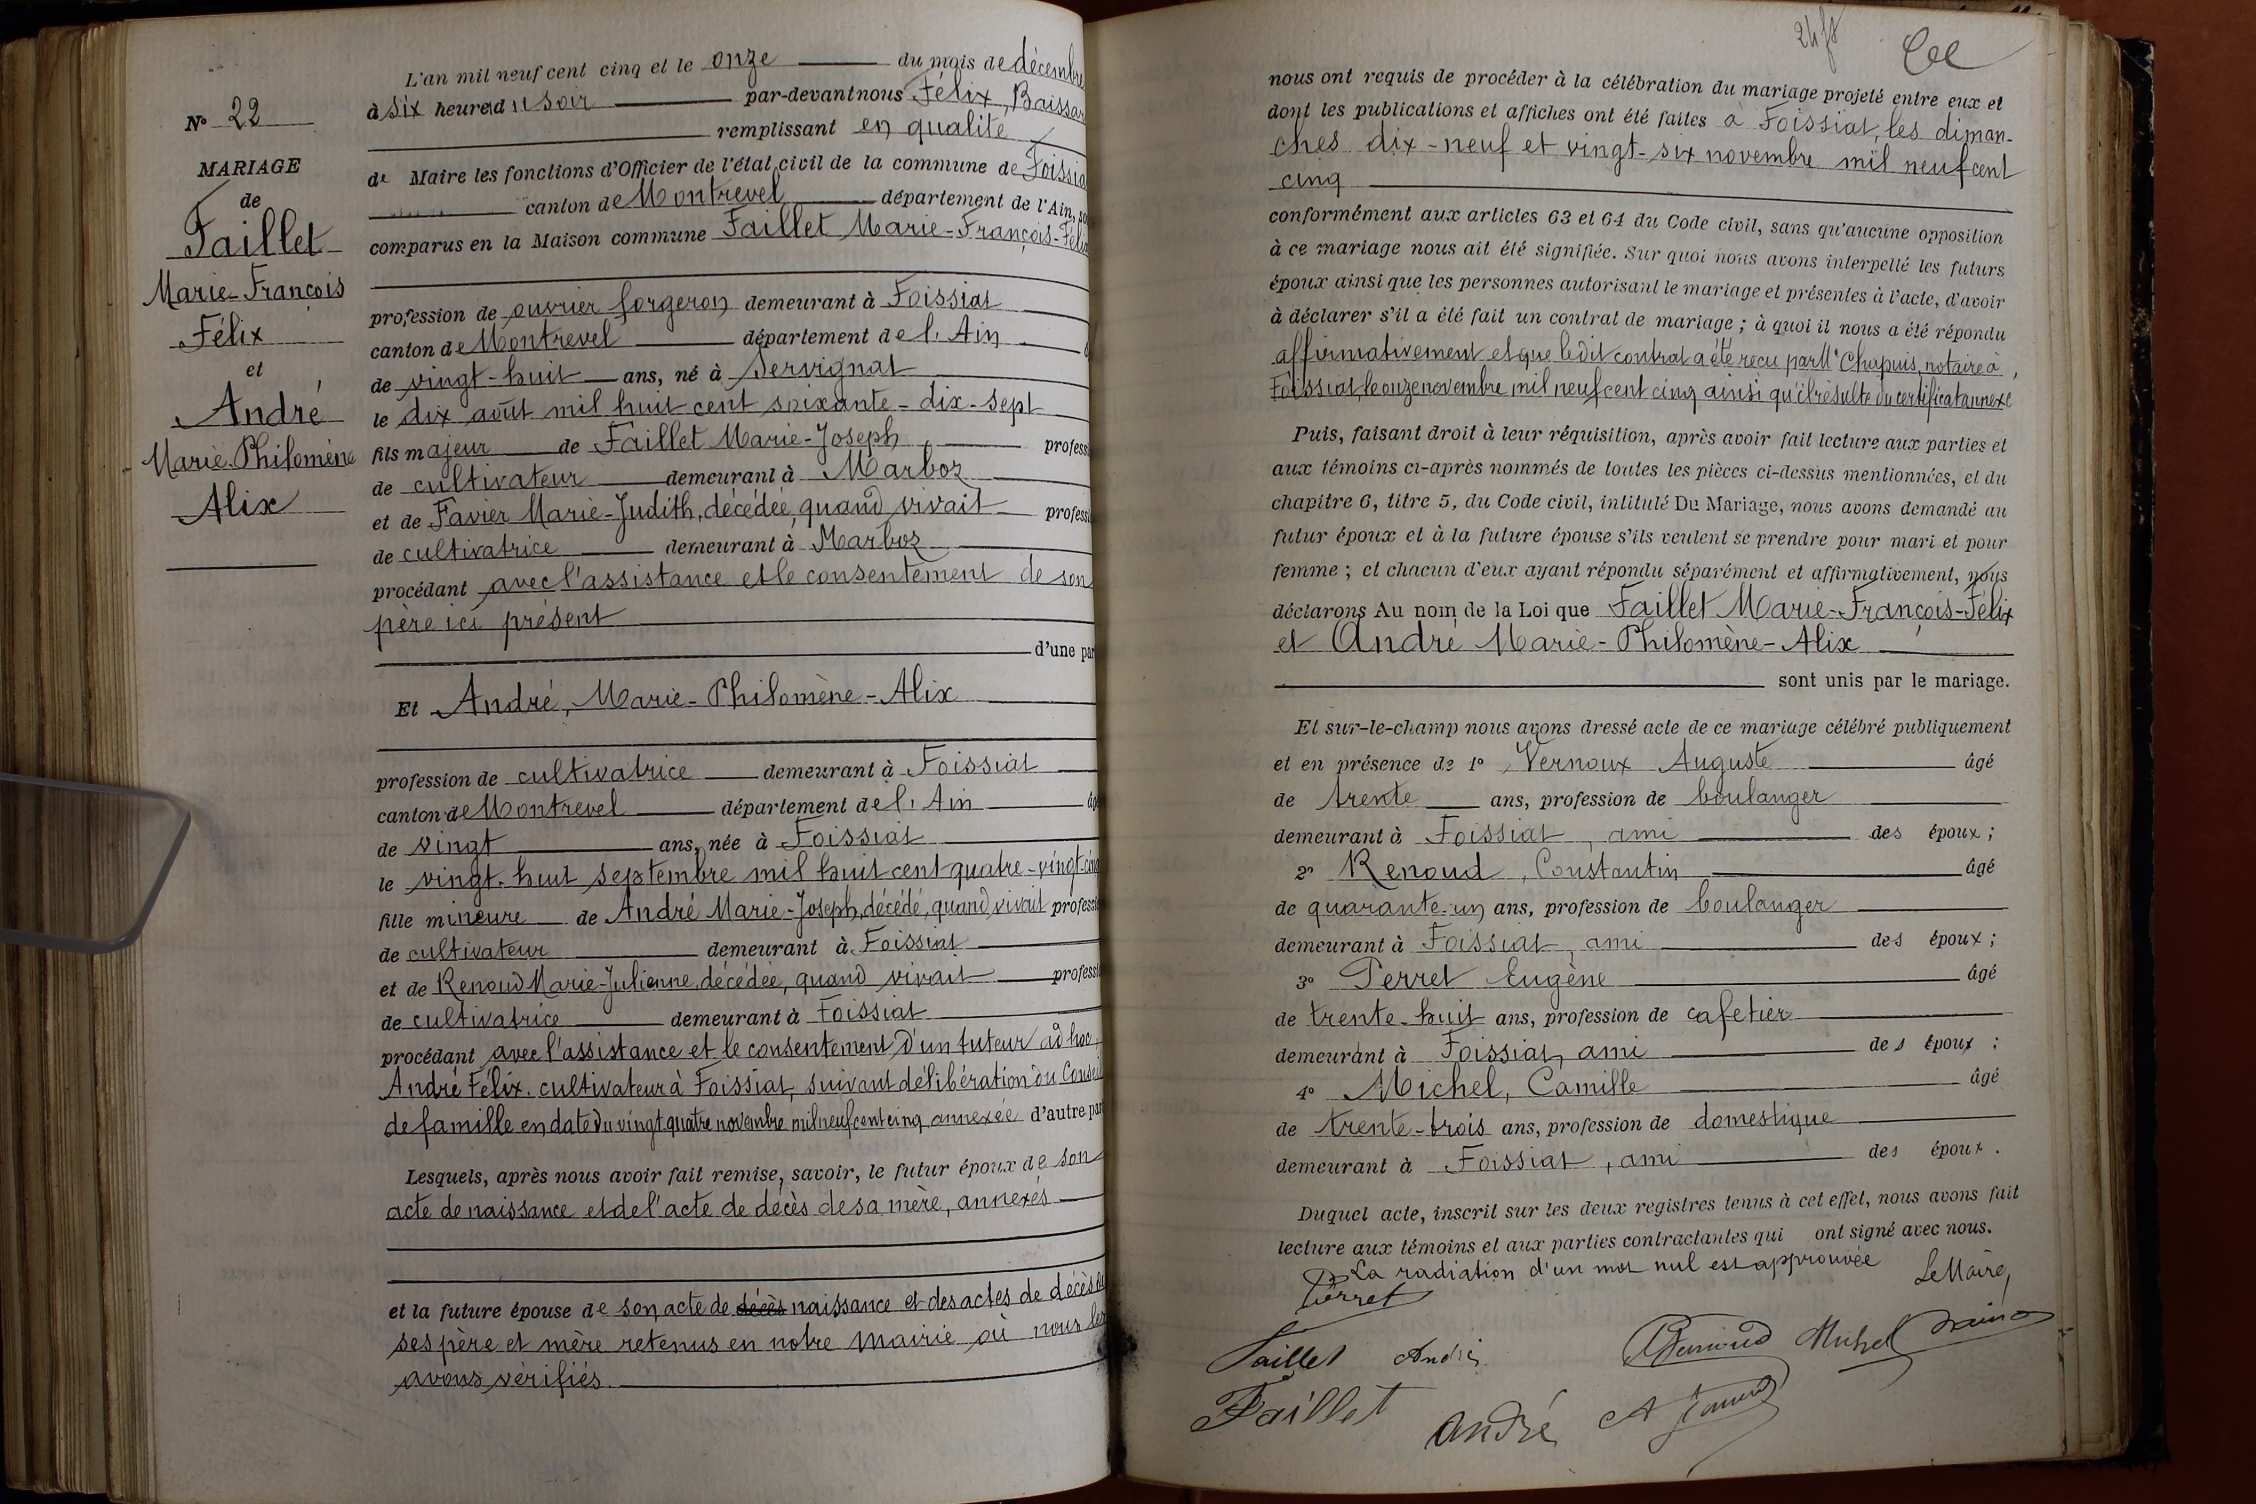 N° 22
MARIAGE
de
Faillet
Marie-François
Félix
et
André
Marie-Philomène
Alix
L'an mil neuf cent cinq et le onze du mois de décembre
à six heures du soir par-devant nous Félix, Baissar
remplissant en qualité
de Maire les fonctions d'Officier de l'état civil de la commune de Foissia
canton de Montrevel département de l'Ain,
comparus en la Maison commune Faillet Marie-François-Félix
profession de ouvrier forgeron demeurant à Foissiat
canton de Montrevel département de l'Ain
de vingt-huit ans, né à Servignat
le dix août mil huit cent soixante-dix-sept
fils majeur de Faillet Marie-Joseph, profess
de cultivateur demeurant à Marboz
et de Favier Marie-Judith, décédée, quand vivait professi
de cultivatrice demeurant à Marboz
procédant avec l'assistance et le consentement de son
père ici présent
d'une par
Et André, Marie-Philomène-Alix
profession de cultivatrice demeurant à Foissiat
canton de Montrevel département de l'Ain âgé
de vingt ans, née à Foissiat
le vingt-huit septembre mil huit cent quatre-vingt-cinq
fille mineure de André Marie-Joseph, décédé, quand vivait professi
de cultivateur demeurant à Foissiat
et de Renoud Marie-Julienne, décédée, quand vivait professi
de cultivatrice demeurant à Foissiat
procédant avec l'assistance et le consentement d'un tuteur ad hoc,
André Félix, cultivateur à Foissiat, suivant délibération du Conseil
de famille en date du vingt quatre novembre mil neuf cent cinq annexée d'autre par
Lesquels, après nous avoir fait remise, savoir, le futur époux de son
acte de naissance et de l'acte de décès de sa mère, annexés
et la future épouse de son acte de décès naissance et des actes de décès de
ses père et mère retenus en notre mairie où nous les
avons vérifiés.
24 f8
nous ont requis de procéder à la célébration du mariage projeté entre eux et
dont les publications et affiches ont été faites à Foissiat, les diman-
ches dix-neuf et vingt-six novembre mil neuf cent
cinq
conformément aux articles 63 et 64 du Code civil, sans qu'aucune opposition
à ce mariage nous ait été signifiée. Sur quoi nous avons interpellé les futurs
époux ainsi que les personnes autorisant le mariage et présentes à l'acte, d'avoir
à déclarer s'il a été fait un contrat de mariage ; à quoi il nous a été répondu
affirmativement et que le dit contrat a été reçu par Me Chapuis, notaire à
Foissiat, le onze novembre mil neuf cent cinq ainsi qu'il résulte du certificat annexé
Puis, faisant droit à leur réquisition, après avoir fait lecture aux parties et
aux témoins ci-après nommés de toutes les pièces ci-dessus mentionnées, et du
chapitre 6, titre 5, du Code civil, intitulé Du Mariage, nous avons demandé au
futur époux et à la future épouse s'ils veulent se prendre pour mari et pour
femme ; et chacun d'eux ayant répondu séparément et affirmativement, nous
déclarons Au nom de la Loi que Faillet Marie-François-Félix
et André Marie-Philomène-Alix
sont unis par le mariage.
Et sur-le-champ nous avons dressé acte de ce mariage célébré publiquement
et en présence de 1° Vernoux Auguste âgé
de trente ans, profession de boulanger
demeurant à Foissiat, ami des époux ;
2° Renoud, Constantin âgé
de quarante-un ans, profession de boulanger
demeurant à Foissiat, ami des époux ;
3° Perret Eugène âgé
de trente-huit ans, profession de cafetier
demeurant à Foissiat, ami des époux ;
4° Michel, Camille âgé
de trente-trois ans, profession de domestique
demeurant à Foissiat, ami des époux.
Duquel acte, inscrit sur les deux registres tenus à cet effet, nous avons fait
lecture aux témoins et aux parties contractantes qui ont signé avec nous.
La radiation d'un mot nul est approuvée Le Maire,
Perret
Faillet André Renoud Michel
Faillet André